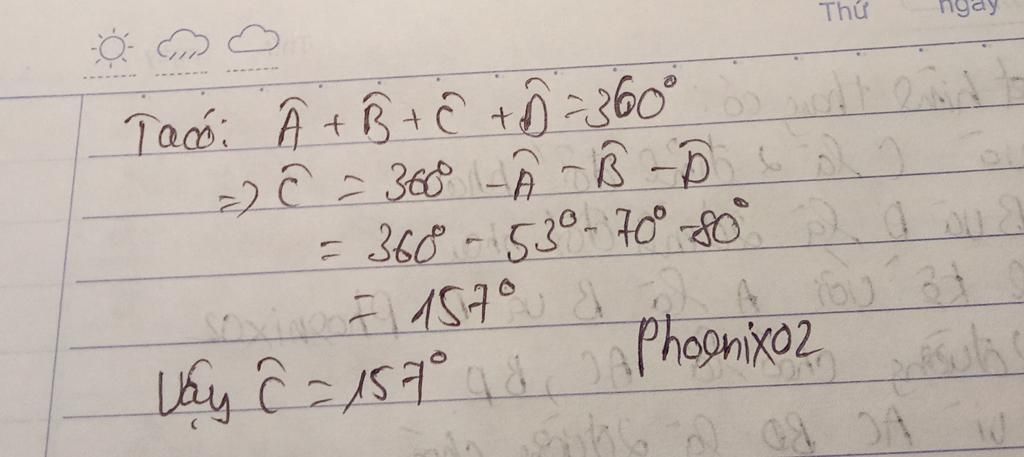 Thứ ngày
Ta có: Â + B̂ + Ĉ + D̂ = 360°
=> Ĉ = 360° - Â - B̂ - D̂
= 360° - 53° - 70° - 80°
= 157°
Vậy Ĉ = 157°
Phoenix02